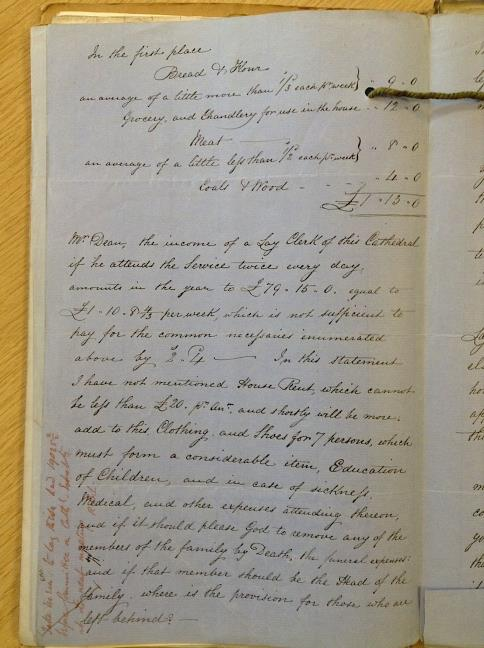 In the first place
Bread & Flour
an average of a little more than 1/3 each pr week } " 9 - 0
Grocery, and Chandlery for use in the house - - 12 - 0
Meat
an average of a little less than 1/2 each pr week } " 8 - 0
Coals & Wood - - - " 4 - 0
£1 - 13 - 0
Mr Dean, the income of a Lay Clerk of this Cathedral
if he attends the Service twice every day,
amounts in the year to £79 - 15 - 0. equal to
£1 - 10 - 8 per week, which is not sufficient to
pay for the common necessaries enumerated
above by 2 - 4 — In this statement
I have not mentioned House Rent, which cannot
be less than £20. pr Anm. and shortly will be more.
add to this, Clothing, and Shoes for 7 persons, which
must form a considerable item, Education
of Children, and in case of sickness,
Medical, and other expenses attending thereon,
and if it should please God to remove any of the
members of the family by Death, the funeral expenses:
and if that member should be the Head of the
family, where is the provision for those who are
left behind? —